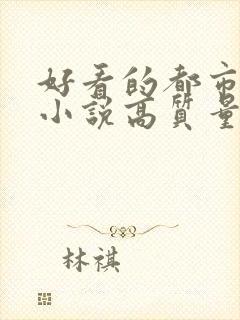 好看的都市
小說高質量
林祺